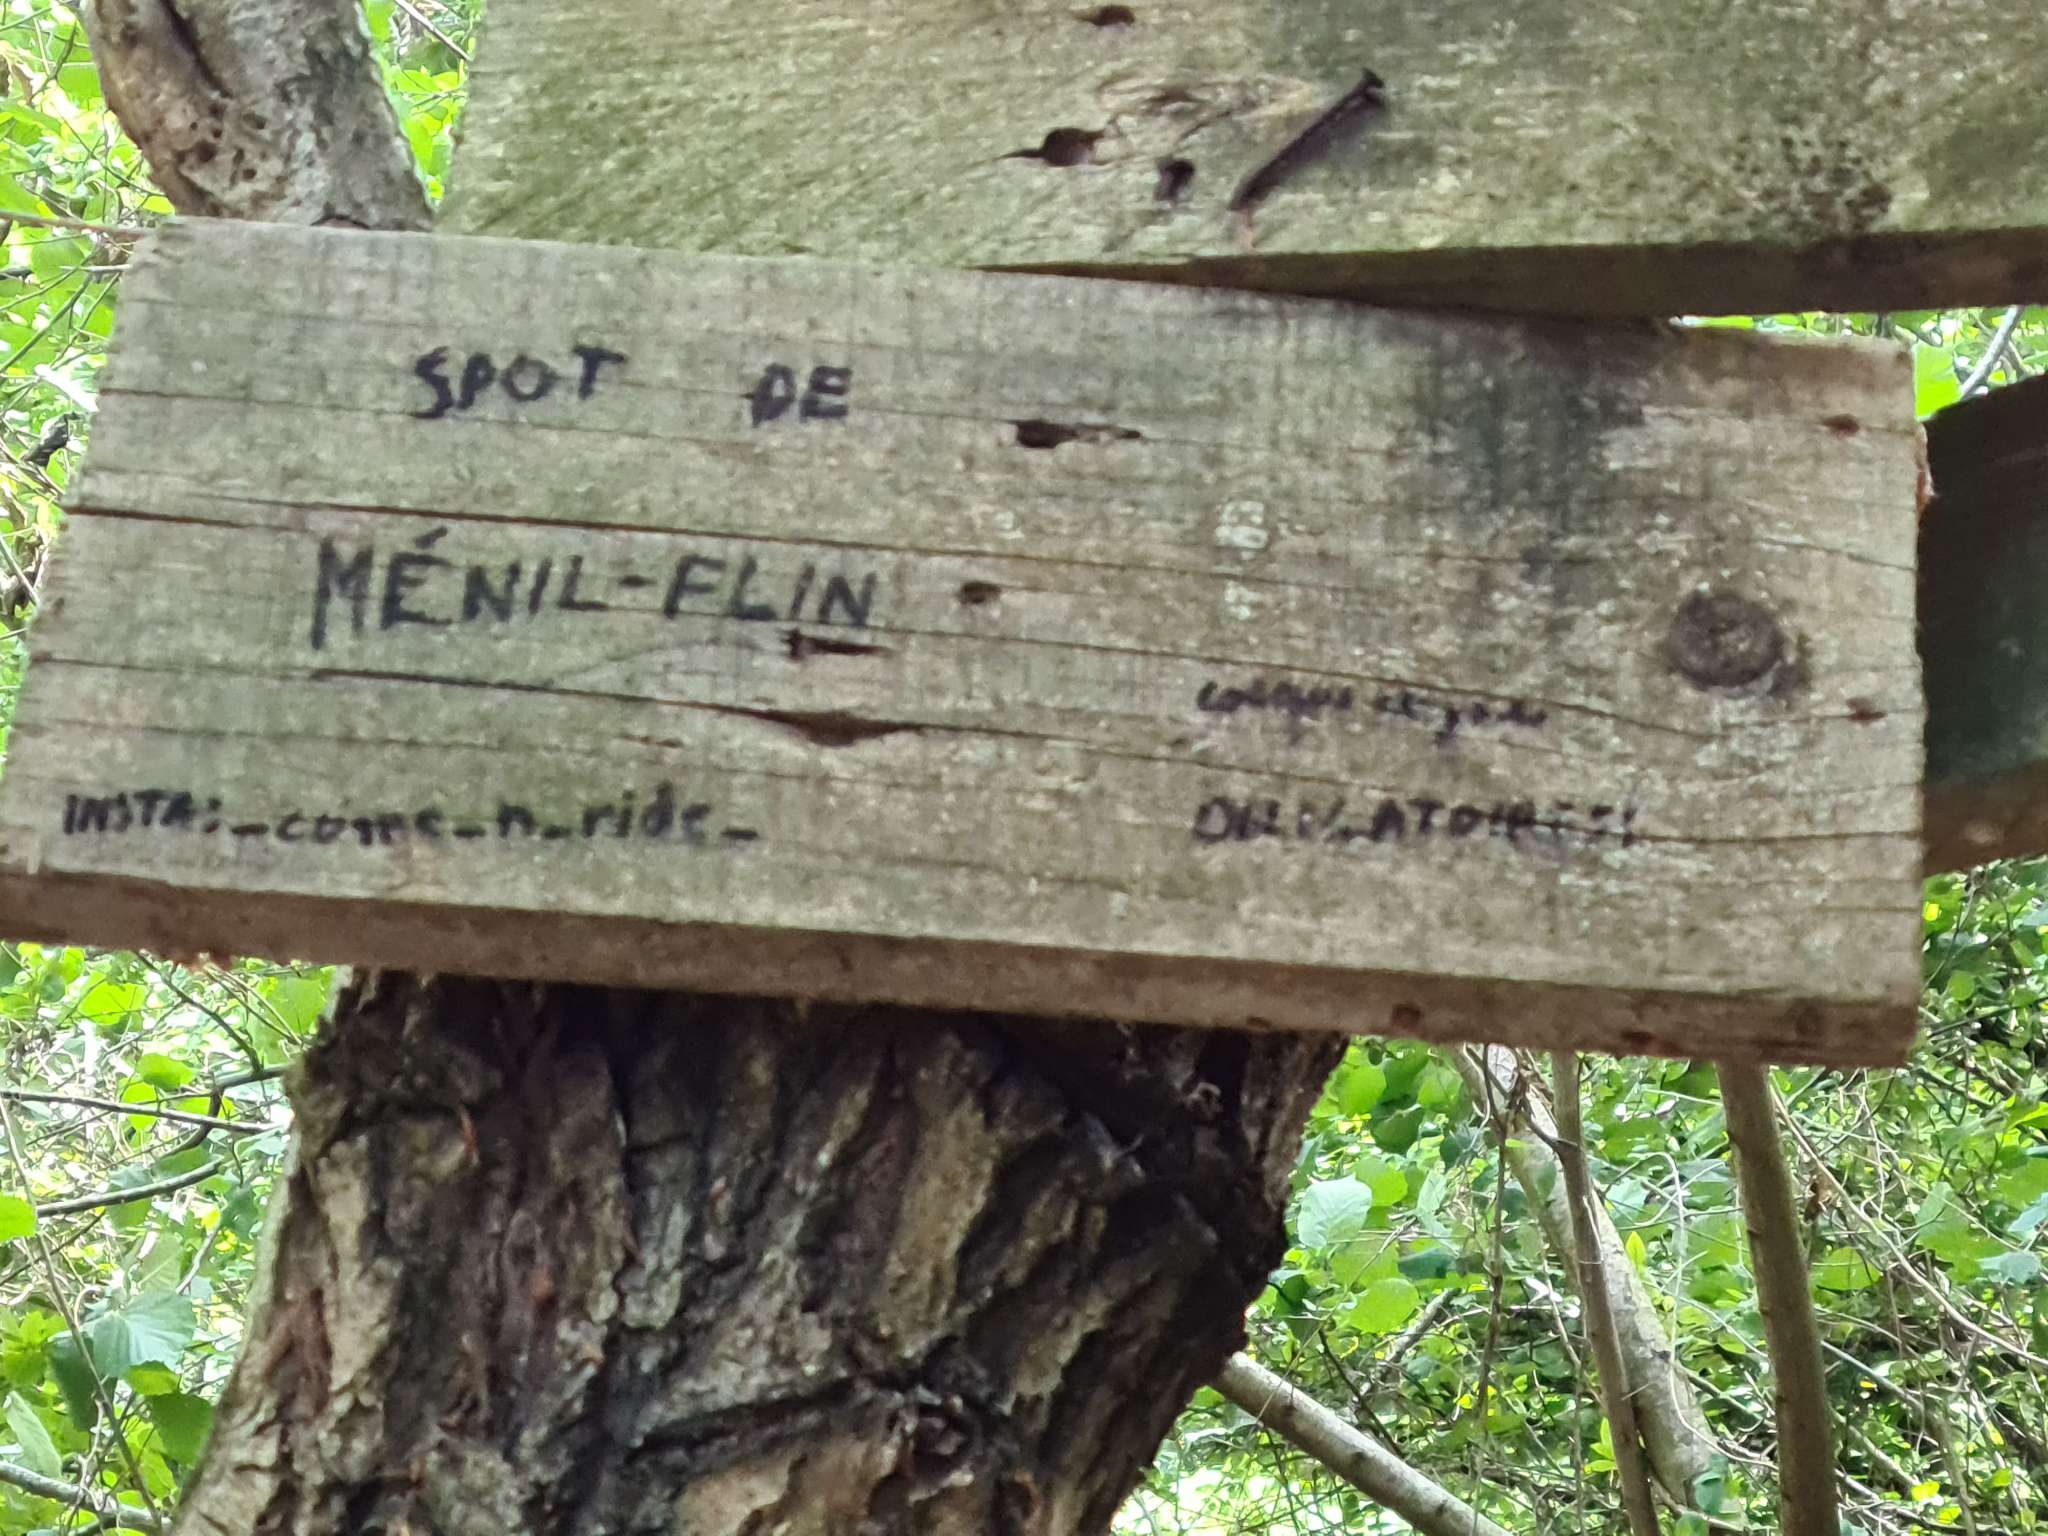 SPOT DE
MÉNIL-FLIN
casque et gants
OBLIGATOIRES!
INSTA: _come_n_ride_